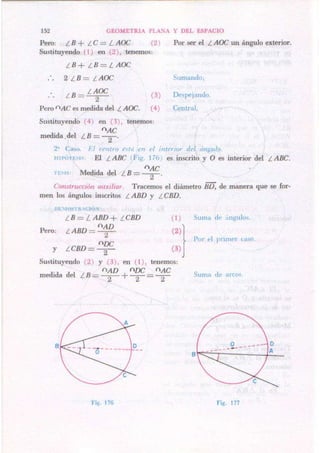 152 GEOMETRIA PLANA Y DEL ESPACIO
Pero: ∠B + ∠C = ∠AOC (2) Por ser el ∠AOC un ángulo exterior.
Sustituyendo (1) en (2), tenemos:
∠B + ∠B = ∠AOC
∴ 2 ∠B = ∠AOC Sumando,
∴ ∠B = ∠AOC / 2 (3) Despejando.
Pero ∩AC es medida del ∠AOC. (4) Central.
Sustituyendo (4) en (3), tenemos:
medida del ∠B = ∩AC / 2.
2º Caso. El centro está en el interior del ángulo.
HIPÓTESIS: El ∠ABC (Fig. 176) es inscrito y O es interior del ∠ABC.
TESIS: Medida del ∠B = ∩AC / 2.
Construcción auxiliar. Tracemos el diámetro BD, de manera que se for-
men los ángulos inscritos ∠ABD y ∠CBD.
DEMOSTRACIÓN:
∠B = ∠ABD + ∠CBD (1) Suma de ángulos.
Pero: ∠ABD = ∩AD / 2 (2)
y ∠CBD = ∩DC / 2 (3) Por el primer caso.
Sustituyendo (2) y (3), en (1), tenemos:
medida del ∠B = ∩AD / 2 + ∩DC / 2 = ∩AC / 2 Suma de arcos.
A
B O D
C
Fig. 176
O D
A
B
C
Fig. 177